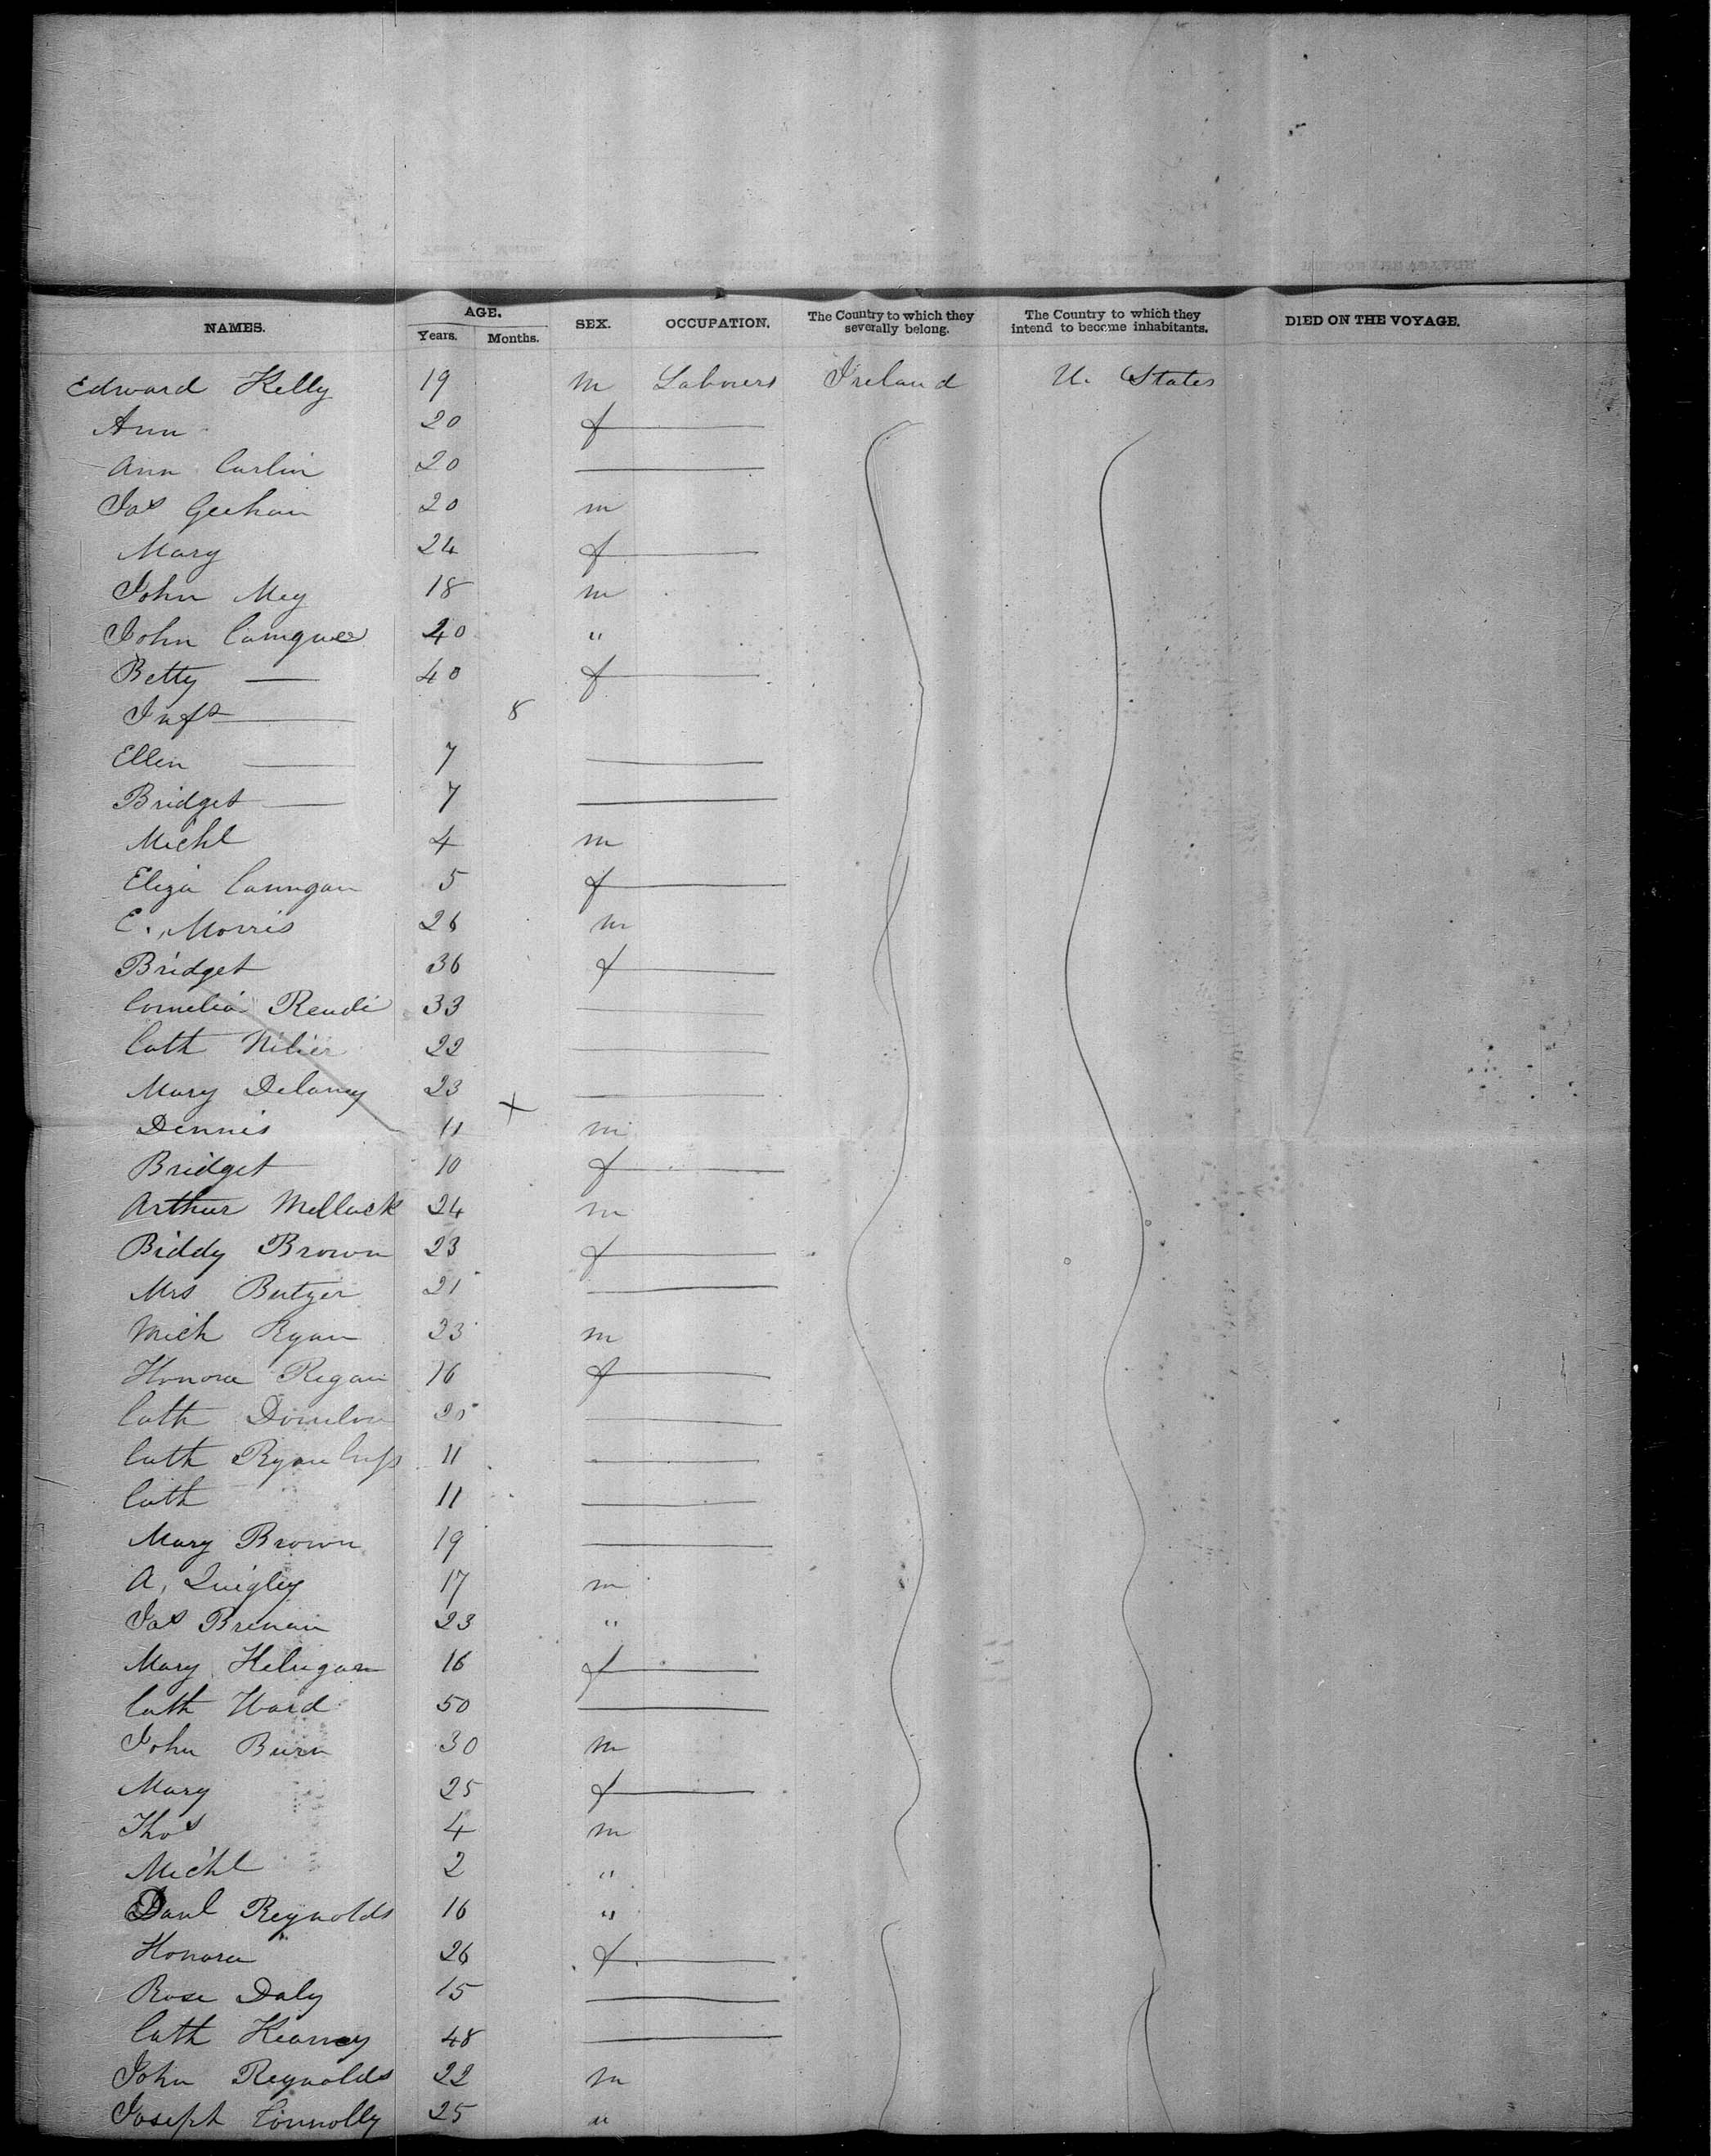 NAMES. AGE. Years. Months. SEX. OCCUPATION. The Country to which they severally belong. The Country to which they intend to become inhabitants. DIED ON THE VOYAGE.
Edward Kelly 19 m Labourers Ireland U. States
Ann 20 f
Ann Carlin 20
Jas Geehan 20 m
Mary 24 f
John Mey 18 m
John 40 "
Betty — 40 f
Inft — 8
Ellen — 7
Bridget — 7
Michl 4 m
Eliza 5 f
E. Morris 26 m
Bridget 36 f
Cornelia 33
Cath 22
Mary Delaney 23
Dennis 11 m
Bridget 10 f
Arthur 24 m
Biddy Brown 23 f
Mrs 21
Mich Ryan 23 m
Honora Regan 16 f
Cath 20
Cath Ryan 11
Cath 11
Mary Brown 19
A. Quigley 17 m
Jas Brenan 23 "
Mary 16 f
Cath Ward 50
John Burn 30 m
Mary 25 f
Thos 4 m
Michl 2 "
Danl Reynolds 16 "
Honora 26 f
Rose Daly 15
Cath Kearney 48
John Reynolds 22 m
Joseph Connolly 25 "